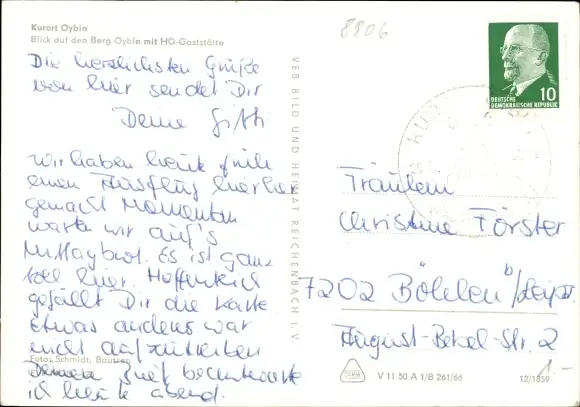 Kurort Oybin
Blick auf den Berg Oybin mit HO-Gaststätte
Die herzlichsten Grüße
von hier sendet Dir
Deine Gitti
Wir haben heute früh
einen Ausflug hierher
gemacht Momentan
warten wir auf's
Mittagbrot. Es ist ganz
toll hier. Hoffentlich
gefällt Dir die Karte.
Etwas anderes war
nicht aufzutreiben
Foto: Schmidt, Bautzen
Deinen Brief beantworte
ich heute abend.
VEB BILD UND HEIMAT REICHENBACH I. V.
8806
10
DEUTSCHE
DEMOKRATISCHE REPUBLIK
Fräulein
Christine Förster
7202 Böhlen b/Leipz.
August-Bebel-Str. 2
V 11 50 A 1/B 261/66
12/1859
1.-